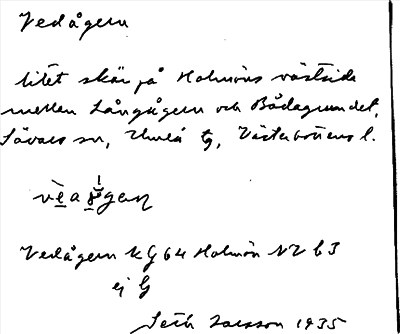 Vedågern
litet skär på Holmöns västsida
mellan Långågern och Bådagrundet,
Sävars sn, Umeå tg, Västerbottens l.
Vedågern kG 64 Holmön NV b3
ej G
Seth Larsson 1935